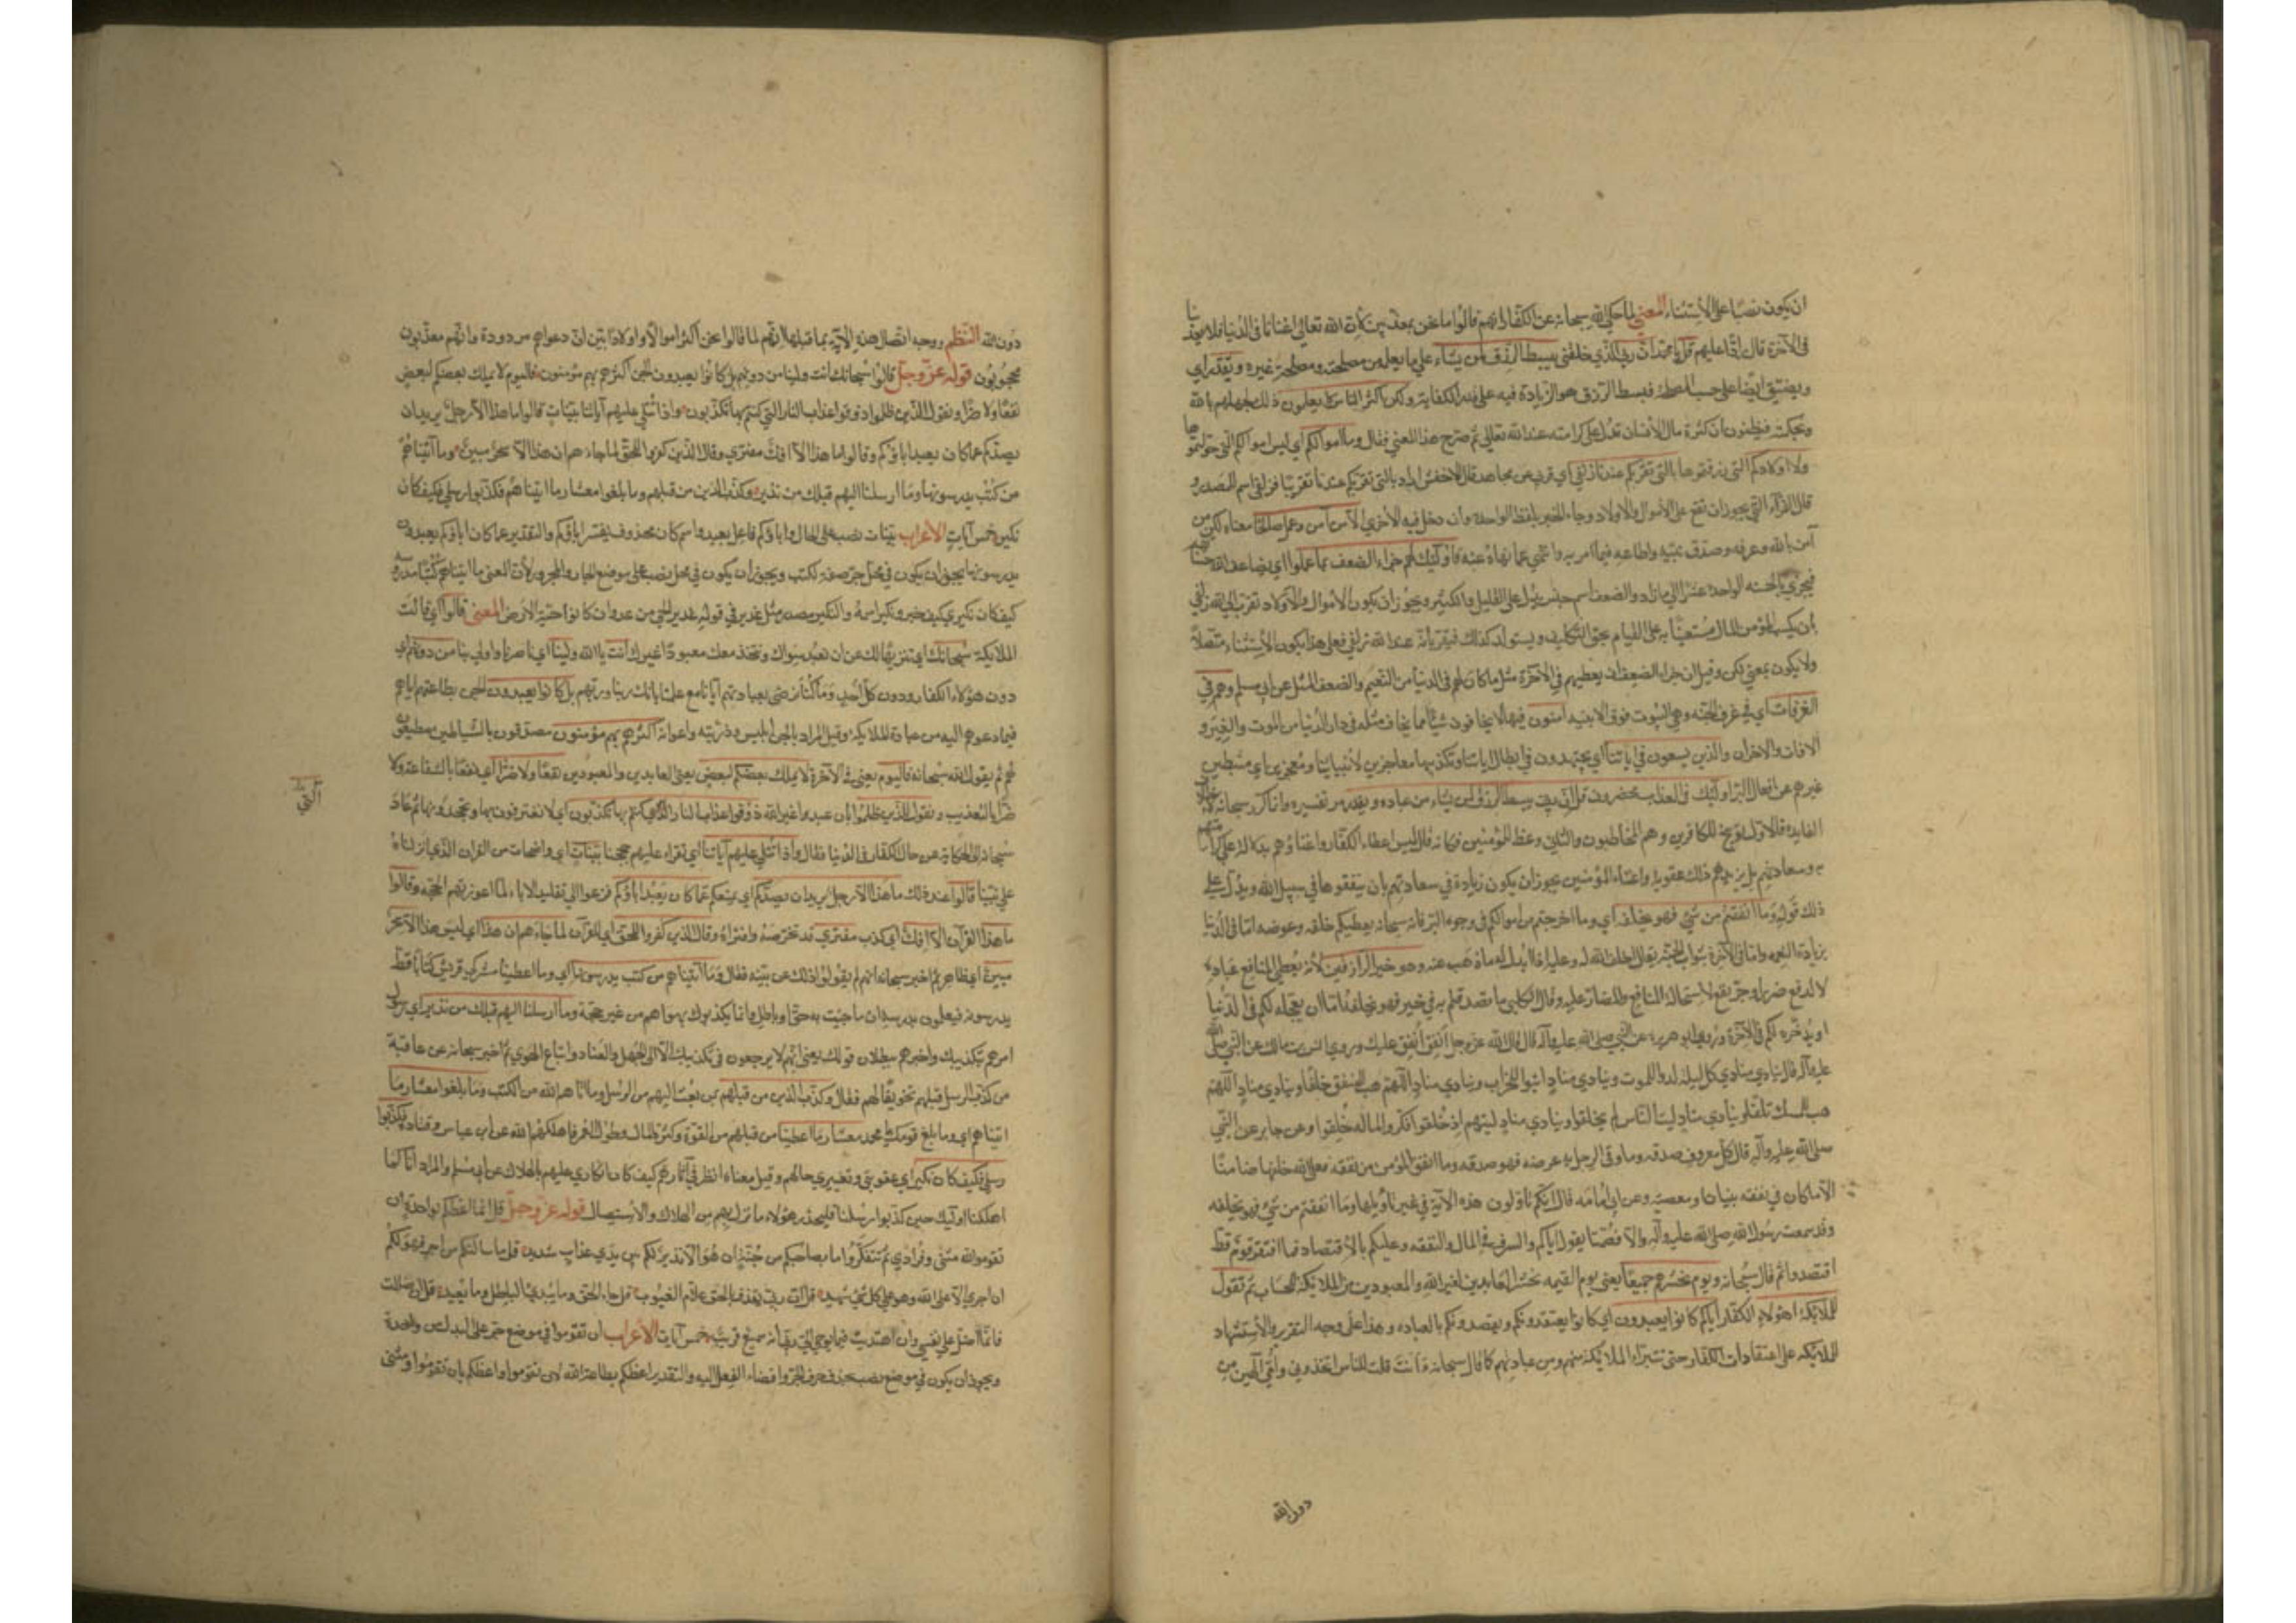 ان يكون نصبًا على الاستثناء المعنى لما حكى الله سبحانه عن الكفار انهم قالوا ما نحن بمعذبين لأن الله تعالى اغنانا في الدنيا فلا يعذبنا
في الآخرة قال رادًّا عليهم قل يا محمد ان ربي الذي خلقني يبسط الرزق لمن يشاء على ما يعلم من مصلحته ومصلحة غيره ويقدر اي
ويضيق ايضًا على حسب المصلحة فبسط الرزق هو الزيادة فيه على قدر الكفاية ولكن اكثر الناس لا يعلمون ذلك لجهلهم بالله
وبحكمته فيظنون ان كثرة مال الانسان تدل على كرامته عند الله تعالى ثم صرح هذا المعنى فقال وما اموالكم اي ليس اموالكم التي خولتموها
ولا اولادكم التي رزقتموها بالتي تقربكم عندنا زلفى اي قربى عن مجاهد قال الاخفش اراد بالتي تقربكم عندنا تقريبًا فزلفى اسم المصدر و
قال الفراء التي يجوز ان تقع على الاموال والاولاد وجاء الخبر بلفظ الواحدة وان دخل فيه الاخرى الا من آمن وعمل صالحًا معناه لكن من
آمن بالله وعرفه وصدق بنبيه واطاعه فيما امر به وانتهى عما نهاه عنه فاولئك لهم جزاء الضعف بما عملوا اي يضاعف الله حسناتهم
فيجزي بالحسنة الواحدة عشرًا الى ما زاد والضعف اسم جنس يدل على القليل والكثير ويجوز ان يكون الاموال والاولاد تقرب الى الله زلفى
بأن يكسب المؤمن المال مستعينًا به على القيام بحق التكليف ويستولد كذلك فيقربانه عند الله زلفى فعلى هذا يكون الاستثناء متصلًا
ولا يكون بمعنى لكن وقيل ان جزاء الضعف ان يعطيهم في الآخرة مثل ما كان لهم في الدنيا من النعيم والضعف المثل عن ابي مسلم وهم في
الغرفات اي في غرف الجنة وهي البيوت فوق الابنية آمنون فيها لا يخافون شيئًا مما يخاف مثله في دار الدنيا من الموت والغير و
الآفات والاحزان والذين يسعون في آياتنا اي يجتهدون في ابطال آياتنا وتكذيبها معاجزين لأنبيائنا ومعجزين اي مثبطين
غيرهم عن افعال البر اولئك في العذاب محضرون قل ان ربي يبسط الرزق لمن يشاء من عباده ويقدر مر تفسيره وانما كرر سبحانه لاختلاف
الفايدة فالاول توبيخ للكافرين وهم المخاطبون والثاني وعظ المؤمنين فكانه قال ليس اعطاء الكفار واغناؤهم بدلالة على كرامتهم
وسعادتهم بل يزيدهم ذلك عقوبة واغناء المؤمنين يجوز ان يكون زيادة في سعادتهم بان ينفقوها في سبيل الله ويدل على
ذلك قوله وما انفقتم من شيء فهو يخلفه اي وما اخرجتم من اموالكم في وجوه البر فانه سبحانه يعطيكم خلفه وعوضه اما في الدنيا
بزيادة النعمة واما في الآخرة بثواب الجنة يقال اخلف الله له وعليه اذا ابدل له ما ذهب عنه وهو خير الرازقين لأنه يعطي لمنافع عباده
لا لدفع ضرر او جر نفع لاستحالة المنافع والمضار عليه وقال الكلبي ما تصدقتم به في خير فهو يخلفه اما ان يعجله لكم في الدنيا
او يدخره لكم في الآخرة وروى ابو هريرة عن النبي صلى الله عليه وآله قال قال الله عز وجل انفق أنفق عليك وروى انس بن مالك عن النبي صلى الله
عليه وآله قال ينادي منادي كل ليلة لدوا للموت وينادي مناد ابنوا للخراب وينادي مناد اللهم هب للمنفق خلفًا وينادي مناد اللهم
هب للممسك تلفًا وينادي مناد ليت الناس لم يخلقوا وينادي مناد ليتهم اذ خلقوا فكروا لما له خلقوا وعن جابر عن النبي
صلى الله عليه وآله قال كل معروف صدقة وما وقى الرجل به عرضه فهو صدقة وما انفق المؤمن من نفقة فعلى الله خلفها ضامنًا
الا ما كان في نفقه بنيان او معصية وعن ابي امامة قال انكم تأولون هذه الآية في غير تأويلها وما انفقتم من شيء فهو يخلفه
وقد سمعت رسول الله صلى الله عليه وآله والا فصمتا يقول اياكم والسرف في المال والنفقه وعليكم بالاقتصاد فما افتقر قوم قط
اقتصدوا ثم قال سبحانه ويوم نحشرهم جميعًا يعني يوم القيمه نحشر العابدين لغير الله والمعبودين من الملايكة للحساب ثم نقول
للملايكة اهؤلاء الكفار اياكم كانوا يعبدون اي كانوا يعتقدونكم ويقصدونكم بالعباده وهذا على وجه التقرير والاستشهاد
للملايكه على اعتقادات الكفار حتى تتبراء الملايكة منهم ومن عبادتهم كما قال سبحانه ءانت قلت للناس اتخذوني وأمي آلهين من
دون الله
دون الله النظم ووجه اتصال هذه الآية بما قبلها انهم لما قالوا نحن اكثر اموالًا واولادًا بين ان دعواهم مردودة وانهم معذبون
محجوبون قوله عز وجل قالوا سبحانك انت ولينا من دونهم بل كانوا يعبدون الجن اكثرهم بهم مؤمنون فاليوم لا يملك بعضكم لبعض
نفعًا ولا ضرًا ونقول للذين ظلموا ذوقوا عذاب النار التي كنتم بها تكذبون واذا تتلى عليهم آياتنا بينات قالوا ما هذا الا رجل يريد ان
يصدكم عما كان يعبد اباؤكم وقالوا ما هذا الا افك مفترى وقال الذين كفروا للحق لما جاءهم ان هذا الا سحر مبين وما آتيناهم
من كتب يدرسونها وما ارسلنا اليهم قبلك من نذير وكذب الذين من قبلهم وما بلغوا معشار ما اتيناهم فكذبوا رسلي فكيف كان
نكير خمس آيات الاعراب بينات نصب على الحال واباؤكم فاعل يعبد واسم كان محذوف يفسر اباؤكم والتقدير عما كان اباؤكم يعبدون
يدرسونها يجوز ان يكون في محل جر صفة لكتب ويجوز ان يكون في محل نصب على موضع الجار والمجرور لأن المعنى ما آتيناهم كتبًا مدروسة
كيف كان نكيري كيف خبر ونكير اسمه والنكير مصدر مثل عذير في قوله عذير الحي من عدوان كانوا حية الارض المعنى قالوا اي قالت
الملايكة سبحانك اي تنزيهًا لك عن ان نعبد سواك ونتخذ معك معبودًا غيرك انت يا الله ولينا اي ناصرنا واولى بنا من دونهم اي
دون هؤلاء الكفار ودون كل احد وما كنا نرضى بعبادتهم ايانا مع علمنا بانك ربنا وربهم بل كانوا يعبدون الجن بطاعتهم اياهم
فيما دعوهم اليه من عبادة الملايكة وقيل المراد بالجن ابليس وذريته واعوانه اكثرهم بهم مؤمنون مصدقون بالشياطين مطيعون
لهم ثم يقول الله سبحانه فاليوم يعني في الآخرة لا يملك بعضكم لبعض يعني العابدين والمعبودين نفعًا ولا ضرًا اي نفعًا بالشفاعة ولا
ضرًا بالتعذيب ونقول للذين ظلموا بان عبدوا غير الله ذوقوا عذاب النار التي كنتم بها تكذبون اي لا تعترفون بها وتجحدونها ثم عاد
التي
سبحانه الى الحكاية عن حال الكفار في الدنيا فقال واذا تتلى عليهم آياتنا اي تقراء عليهم حججنا بينات اي واضحات من القران الذي انزلناه
على نبينا قالوا عند ذلك ما هذا الا رجل يريد ان يصدكم اي يمنعكم عما كان يعبد اباؤكم فزعوا الى تقليد الاباء لما اعوزتهم الحجة وقالوا
ما هذا القرآن الا افك اي كذب مفترى قد تخرصه وافتراه وقال الذين كفروا للحق اي للقرآن لما جاءهم ان هذا اي ليس هذا الا سحر
مبين اي ظاهر ثم اخبر سبحانه انهم لم يقولوا ذلك عن بينة فقال وما آتيناهم من كتب يدرسونها اي وما اعطينا مشركي قريش كتابًا قط
يدرسونه فيعلمون بدرسه ان ما جئت به حق او باطل وانما يكذبونك بهواهم من غير حجة وما ارسلنا اليهم قبلك من نذير اي رسول
امرهم بتكذيبك واخبرهم ببطلان قولك يعني انهم لا يرجعون في تكذيبك الا الى الجهل والعناد واتباع الهوى ثم اخبر سبحانه عن عاقبة
من كذب الرسل قبلهم تخويفًا لهم فقال وكذب الذين من قبلهم بمن بعثنا اليهم من الرسل وما آتاهم الله من الكتب وما بلغوا معشار ما
اتيناهم اي وما بلغ قومك يا محمد معشار ما اعطينا من قبلهم من القوة وكثرة المال وطول العمر فاهلكهم الله عن ابن عباس وقتادة فكذبوا
رسلي فكيف كان نكير اي عقوبتي وتغييري حالهم وقيل معناه انظر في آثارهم كيف كان انكاري عليهم بالهلاك عن ابي مسلم والمراد انا كما
اهلكنا اولئك حين كذبوا رسلنا فليحذر هؤلاء ما نزل بهم من الهلاك والاستيصال قوله عز وجل قل انما اعظكم بواحدة ان
تقوموا لله مثنى وفرادى ثم تتفكروا ما بصاحبكم من جنة ان هو الا نذير لكم بين يدي عذاب شديد قل ما سألتكم من اجر فهو لكم
ان اجري الا على الله وهو على كل شيء شهيد قل ان ربي يقذف بالحق علام الغيوب قل جاء الحق وما يبدئ الباطل وما يعيد قل ان ضللت
فانما اضل على نفسي وان اهتديت فبما يوحي الي ربي انه سميع قريب خمس آيات الاعراب ان تقوموا في موضع جر على البدل من واحدة
ويجوز ان يكون في موضع نصب بحذف حرف الجر وافضاء الفعل اليه والتقدير اعظكم بطاعة الله لان تقوموا او اعظكم بان تقوموا ومثنى